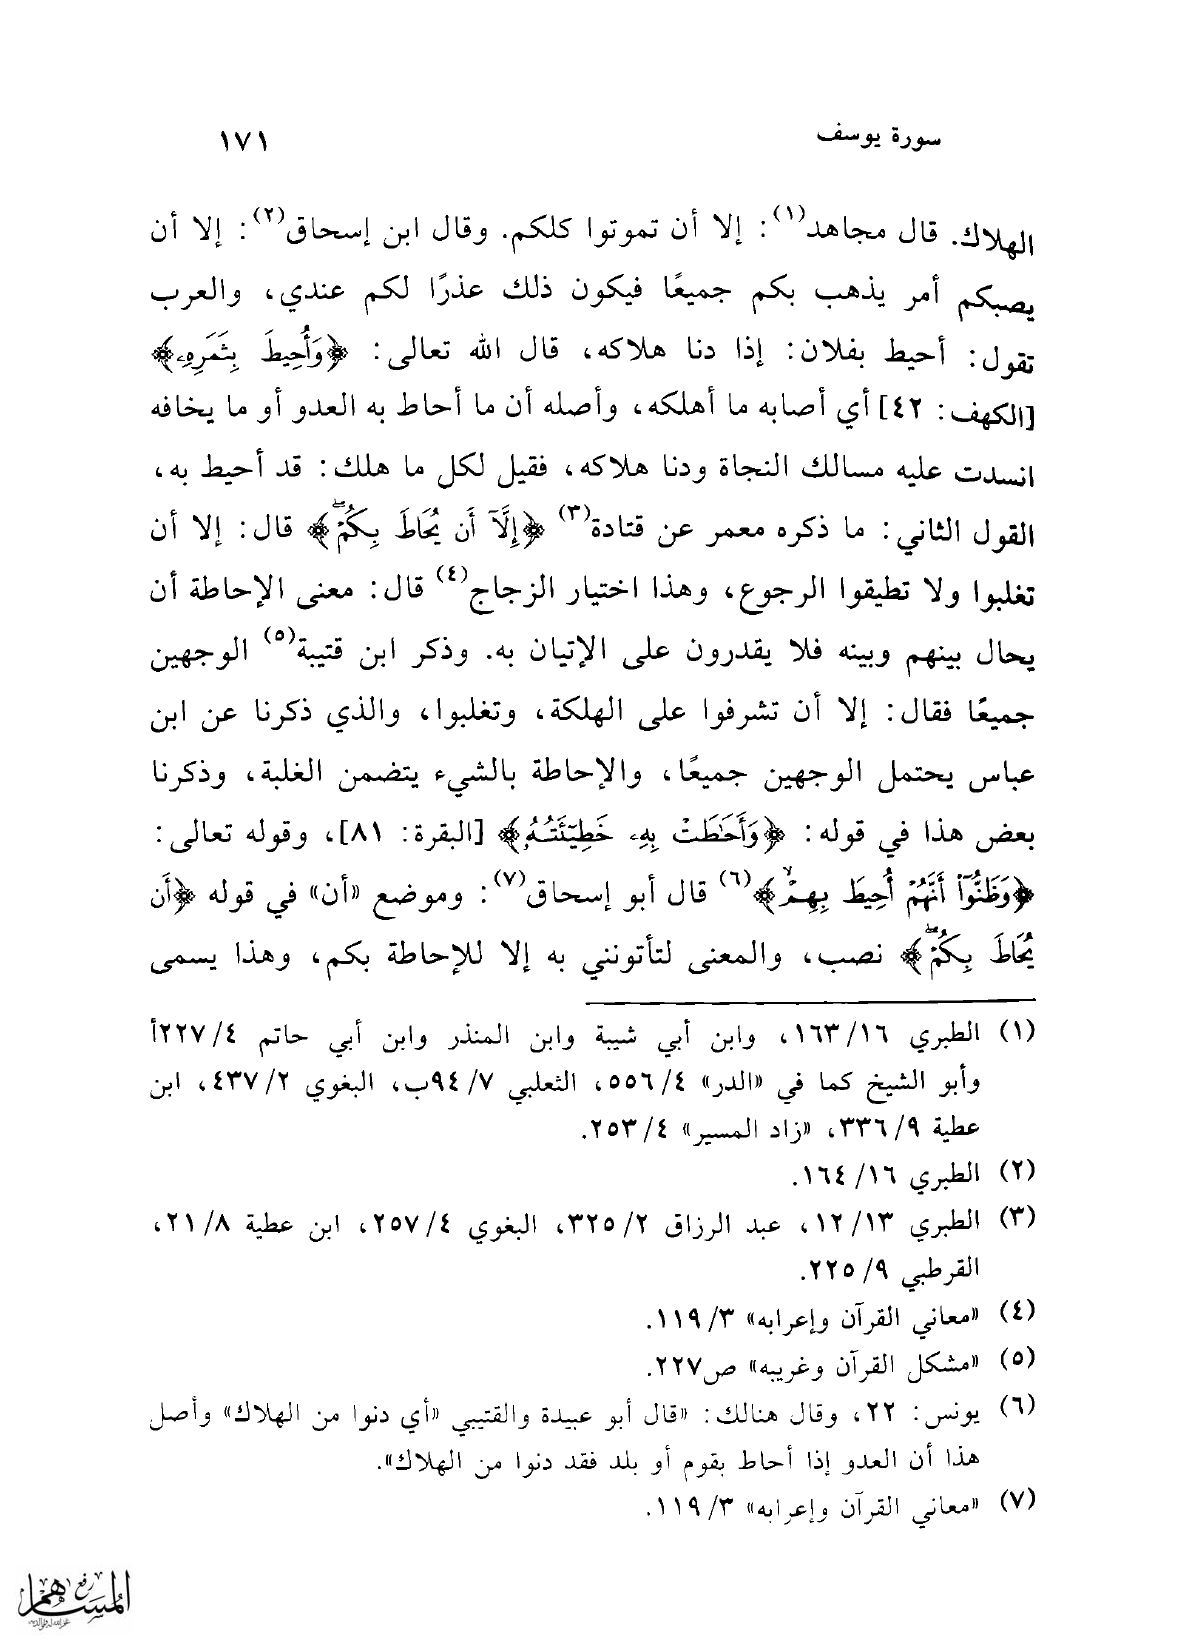 سورة يوسف ١٧١
الهلاك. قال مجاهد(١): إلا أن تموتوا كلكم. وقال ابن إسحاق(٢): إلا أن
يصبكم أمر يذهب بكم جميعًا فيكون ذلك عذرًا لكم عندي، والعرب
تقول: أحيط بفلان: إذا دنا هلاكه، قال الله تعالى: ﴿وَأُحِيطَ بِثَمَرِهِۦ﴾
[الكهف: ٤٢] أي أصابه ما أهلكه، وأصله أن ما أحاط به العدو أو ما يخافه
انسدت عليه مسالك النجاة ودنا هلاكه، فقيل لكل ما هلك: قد أحيط به،
القول الثاني: ما ذكره معمر عن قتادة(٣) ﴿إِلَّآ أَن يُحَاطَ بِكُمْۖ﴾ قال: إلا أن
تغلبوا ولا تطيقوا الرجوع، وهذا اختيار الزجاج(٤) قال: معنى الإحاطة أن
يحال بينهم وبينه فلا يقدرون على الإتيان به. وذكر ابن قتيبة(٥) الوجهين
جميعًا فقال: إلا أن تشرفوا على الهلكة، وتغلبوا، والذي ذكرنا عن ابن
عباس يحتمل الوجهين جميعًا، والإحاطة بالشيء يتضمن الغلبة، وذكرنا
بعض هذا في قوله: ﴿وَأَحَٰطَتْ بِهِۦ خَطِيٓـَٔتُهُۥ﴾ [البقرة: ٨١]، وقوله تعالى:
﴿وَظَنُّوٓا۟ أَنَّهُمْ أُحِيطَ بِهِمْۙ﴾(٦) قال أبو إسحاق(٧): وموضع «أن» في قوله ﴿أَن
يُحَاطَ بِكُمْۖ﴾ نصب، والمعنى لتأتونني به إلا للإحاطة بكم، وهذا يسمى
(١) الطبري ١٦/ ١٦٣، وابن أبي شيبة وابن المنذر وابن أبي حاتم ٤/ ٢٢٧أ
وأبو الشيخ كما في «الدر» ٤/ ٥٥٦، الثعلبي ٧/ ٩٤ب، البغوي ٢/ ٤٣٧، ابن
عطية ٩/ ٣٣٦، «زاد المسير» ٤/ ٢٥٣.
(٢) الطبري ١٦/ ١٦٤.
(٣) الطبري ١٣/ ١٢، عبد الرزاق ٢/ ٣٢٥، البغوي ٤/ ٢٥٧، ابن عطية ٨/ ٢١،
القرطبي ٩/ ٢٢٥.
(٤) «معاني القرآن وإعرابه» ٣/ ١١٩.
(٥) «مشكل القرآن وغريبه» ص٢٢٧.
(٦) يونس: ٢٢، وقال هنالك: «قال أبو عبيدة والقتيبي «أي دنوا من الهلاك» وأصل
هذا أن العدو إذا أحاط بقوم أو بلد فقد دنوا من الهلاك».
(٧) «معاني القرآن وإعرابه» ٣/ ١١٩.
رفع
المساهم